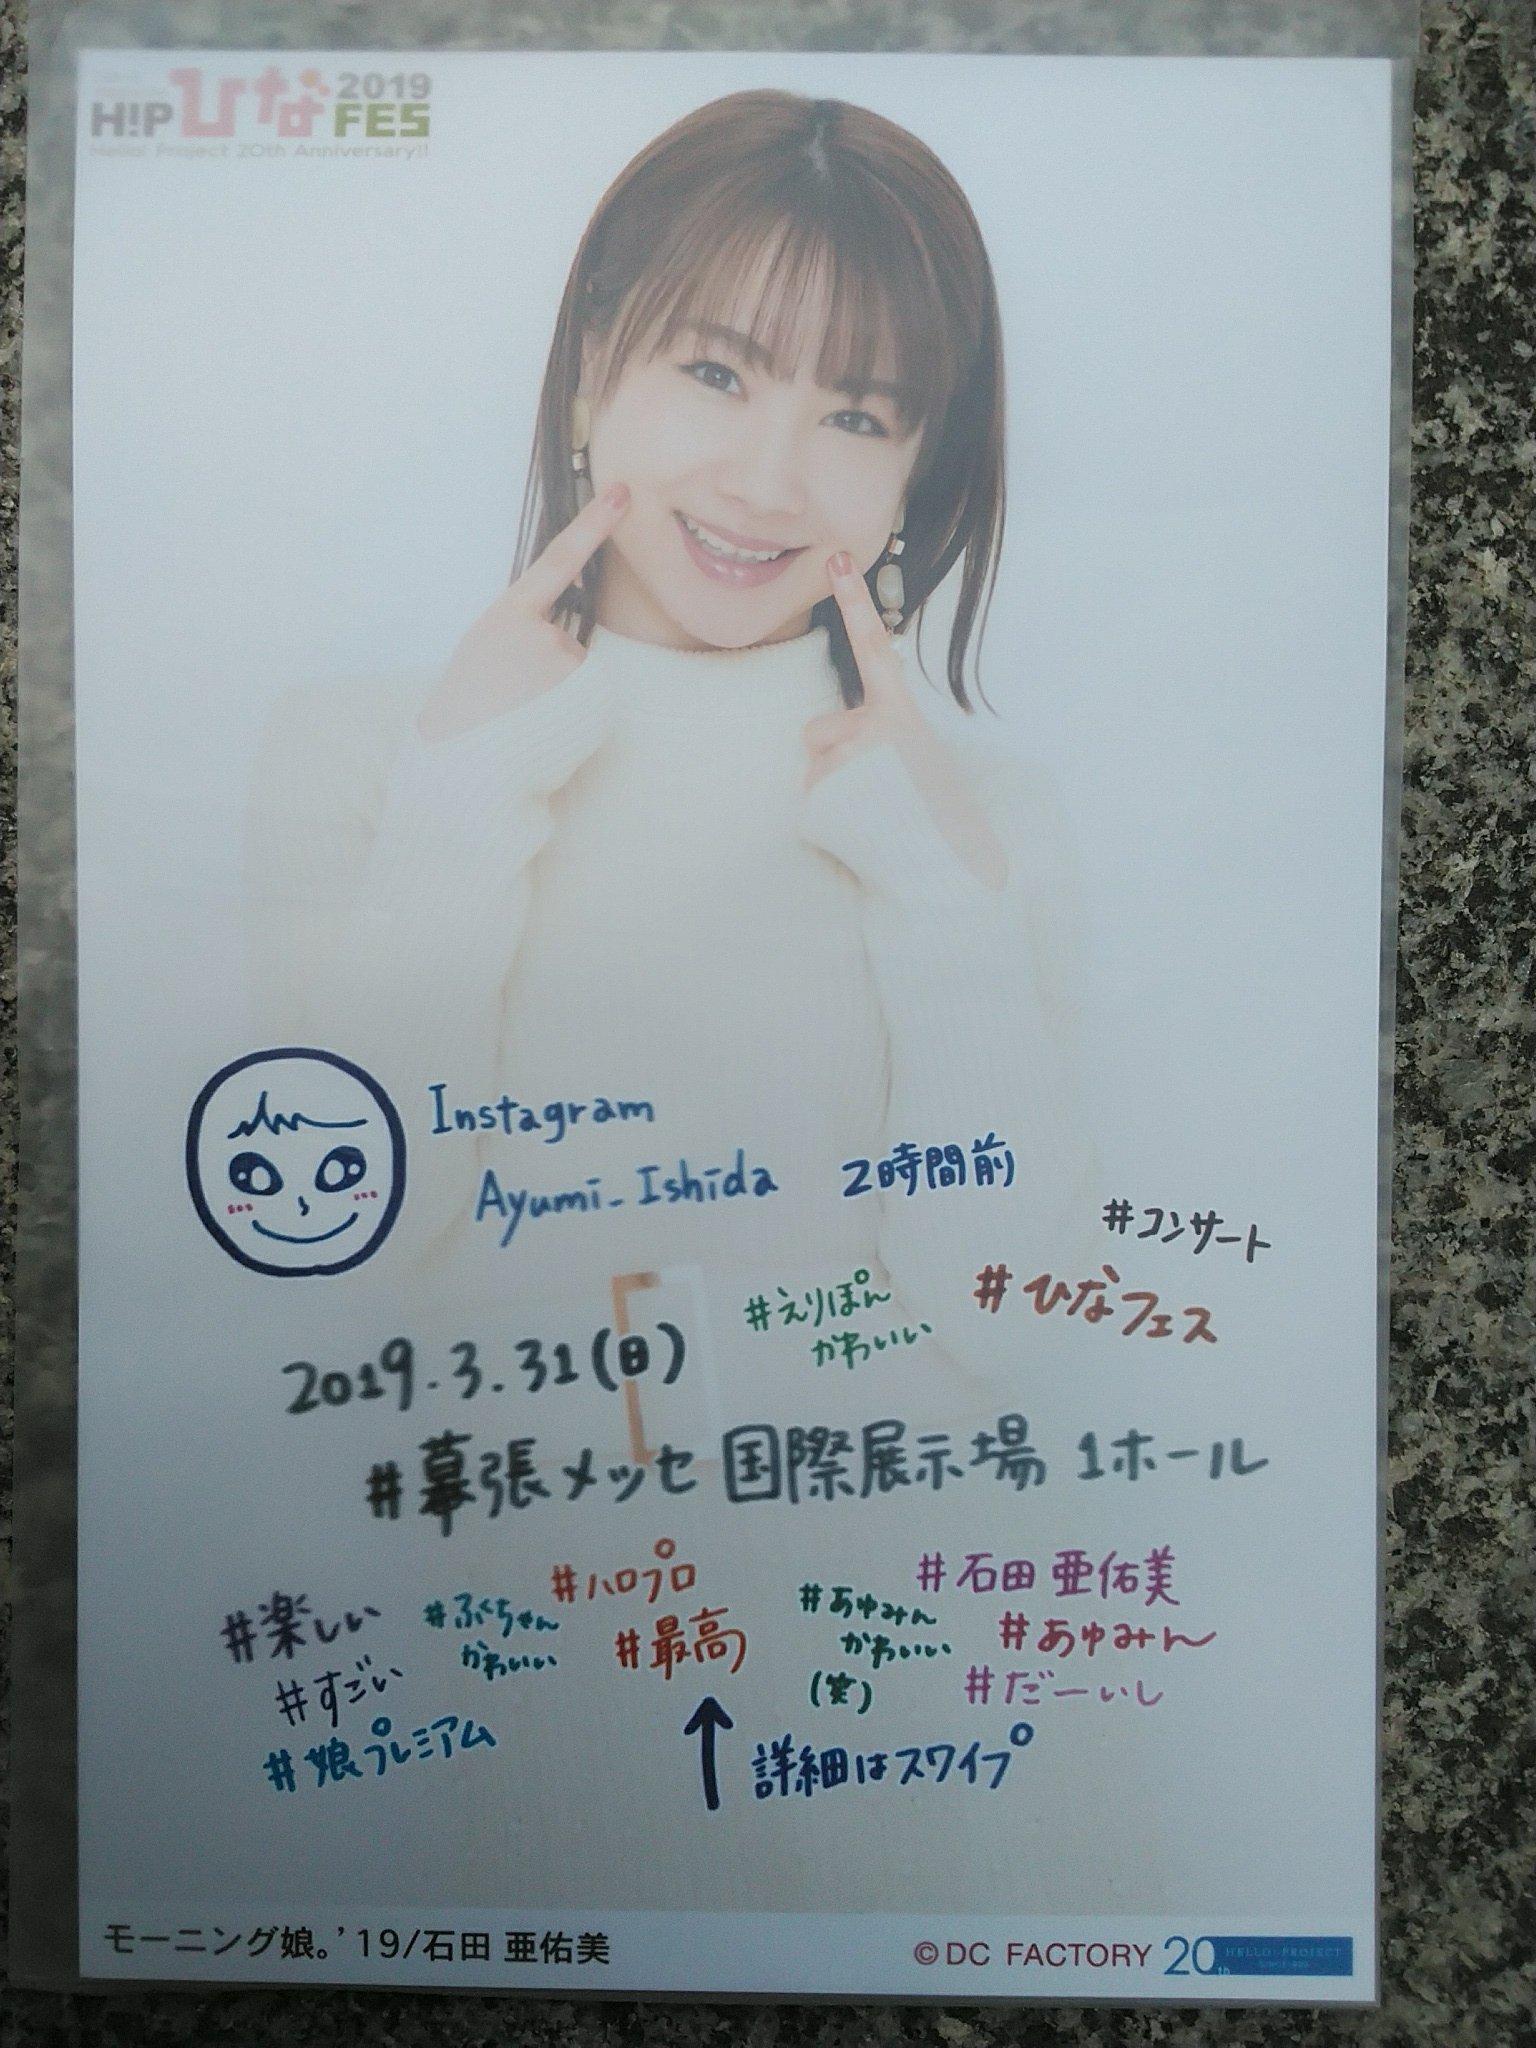 H!P ひな 2019 FES
Hello! Project 20th Anniversary!!
Instagram
Ayumi_Ishida 2時間前
#コンサート
#えりぽん
かわいい
#ひなフェス
2019.3.31(日)
#幕張メッセ 国際展示場 1ホール
#楽しい
#ふくちゃん
かわいい
#ハロプロ
#最高
#あゆみん
かわいい
(笑)
#石田亜佑美
#あゆみん
#だーいし
#すごい
#娘プレミアム
詳細はスワイプ
モーニング娘。'19/石田 亜佑美
©DC FACTORY
20th HELLO! PROJECT